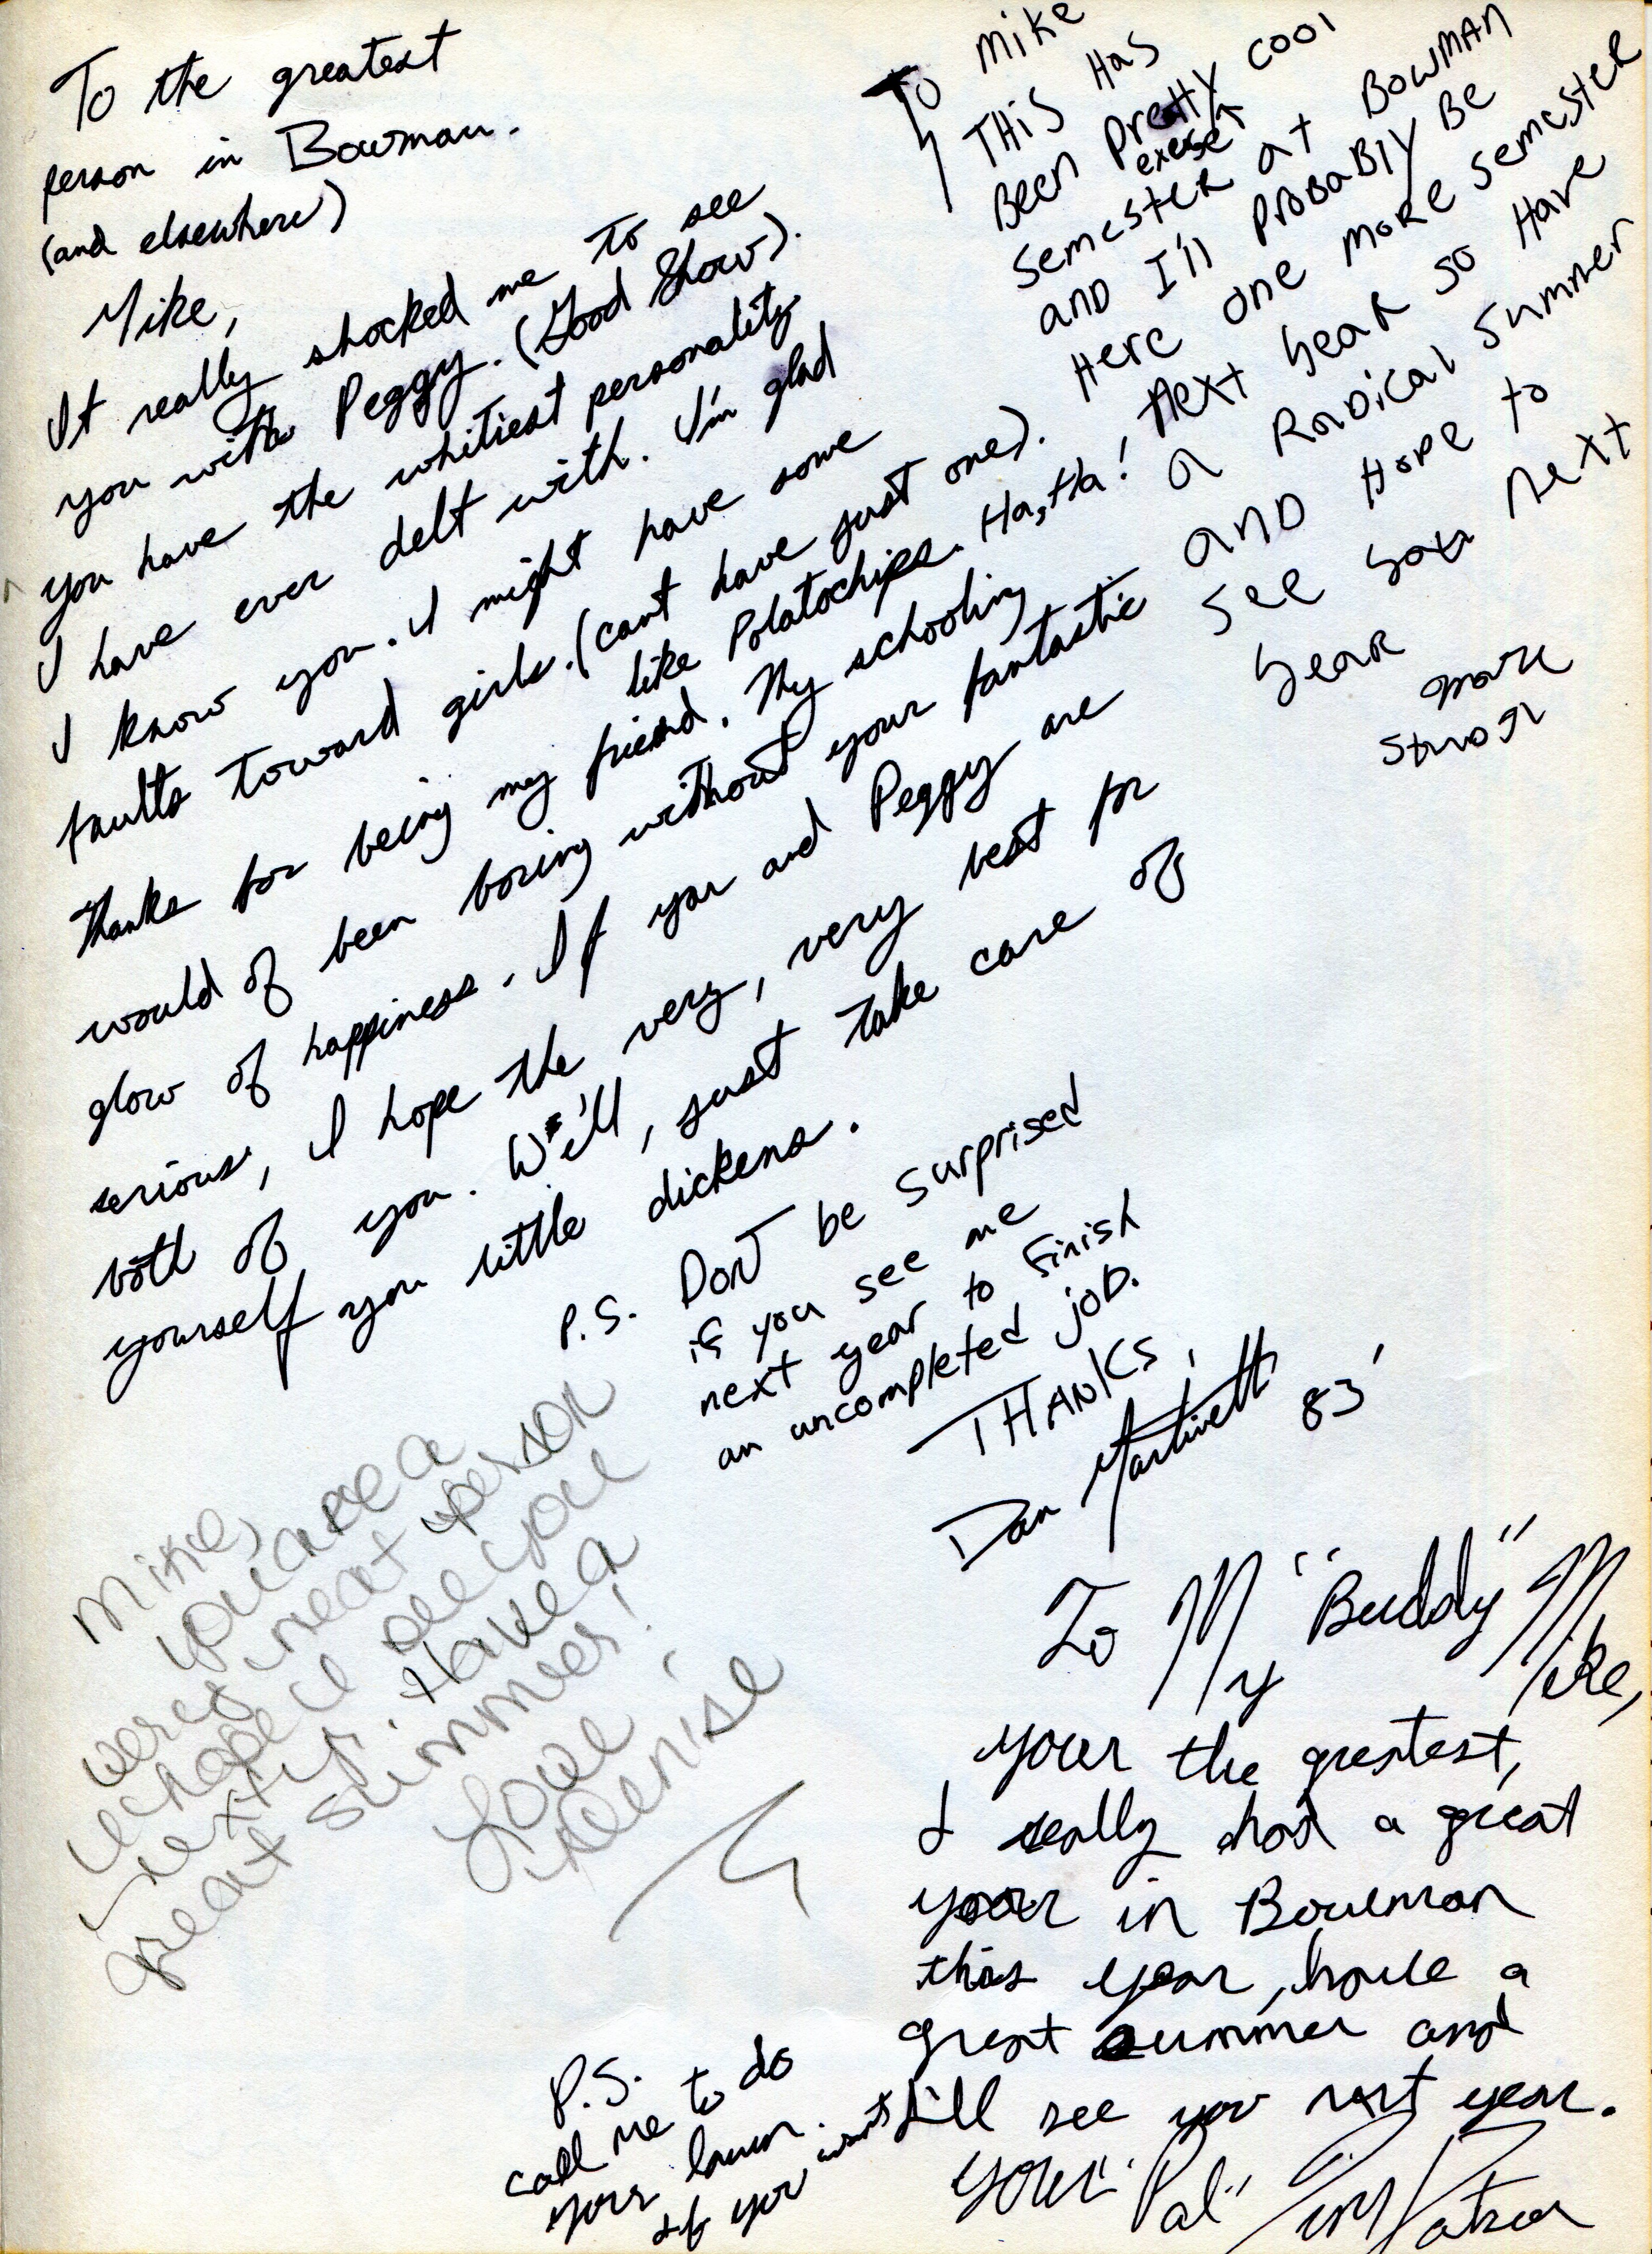 To the greatest
person in Bowman.
(and elsewhere)
Mike,
It really shocked me to see
you with Peggy. (Good Show).
you have the whitiest personality
I have ever delt with. I'm glad
I know you. I might have some
faults toward girls. (cant have just one).
like Potatochips. Ha, Ha!
Thanks for being my friend. My schooling
would of been boring without your fantastic
glow of happiness. If you and Peggy are
serious, I hope the very, very best for
both of you. We'll, just take care of
yourself you little dickens.
P.S. Don't be surprised
if you see me
next year to finish
an uncompleted job.
THANKS,
Dan Martinetti 83'
To Mike
THiS Has
Been Pretty cool
semester at Bowman
and I'll ProbablY Be
Here one more semester
next year so Have
a Radical summer
and Hope to
see you next
year
mark
Mike,
you are a
very neat person
I hope I see you
next yr. Have a
great summer!
Love
Denise
To My "Buddy" Mike,
your the greatest,
I really had a great
year in Bowman
this year, have a
great summer and
I'll see you next year.
Your "Pal"
P.S.
call me to do
your lawn.
if you want